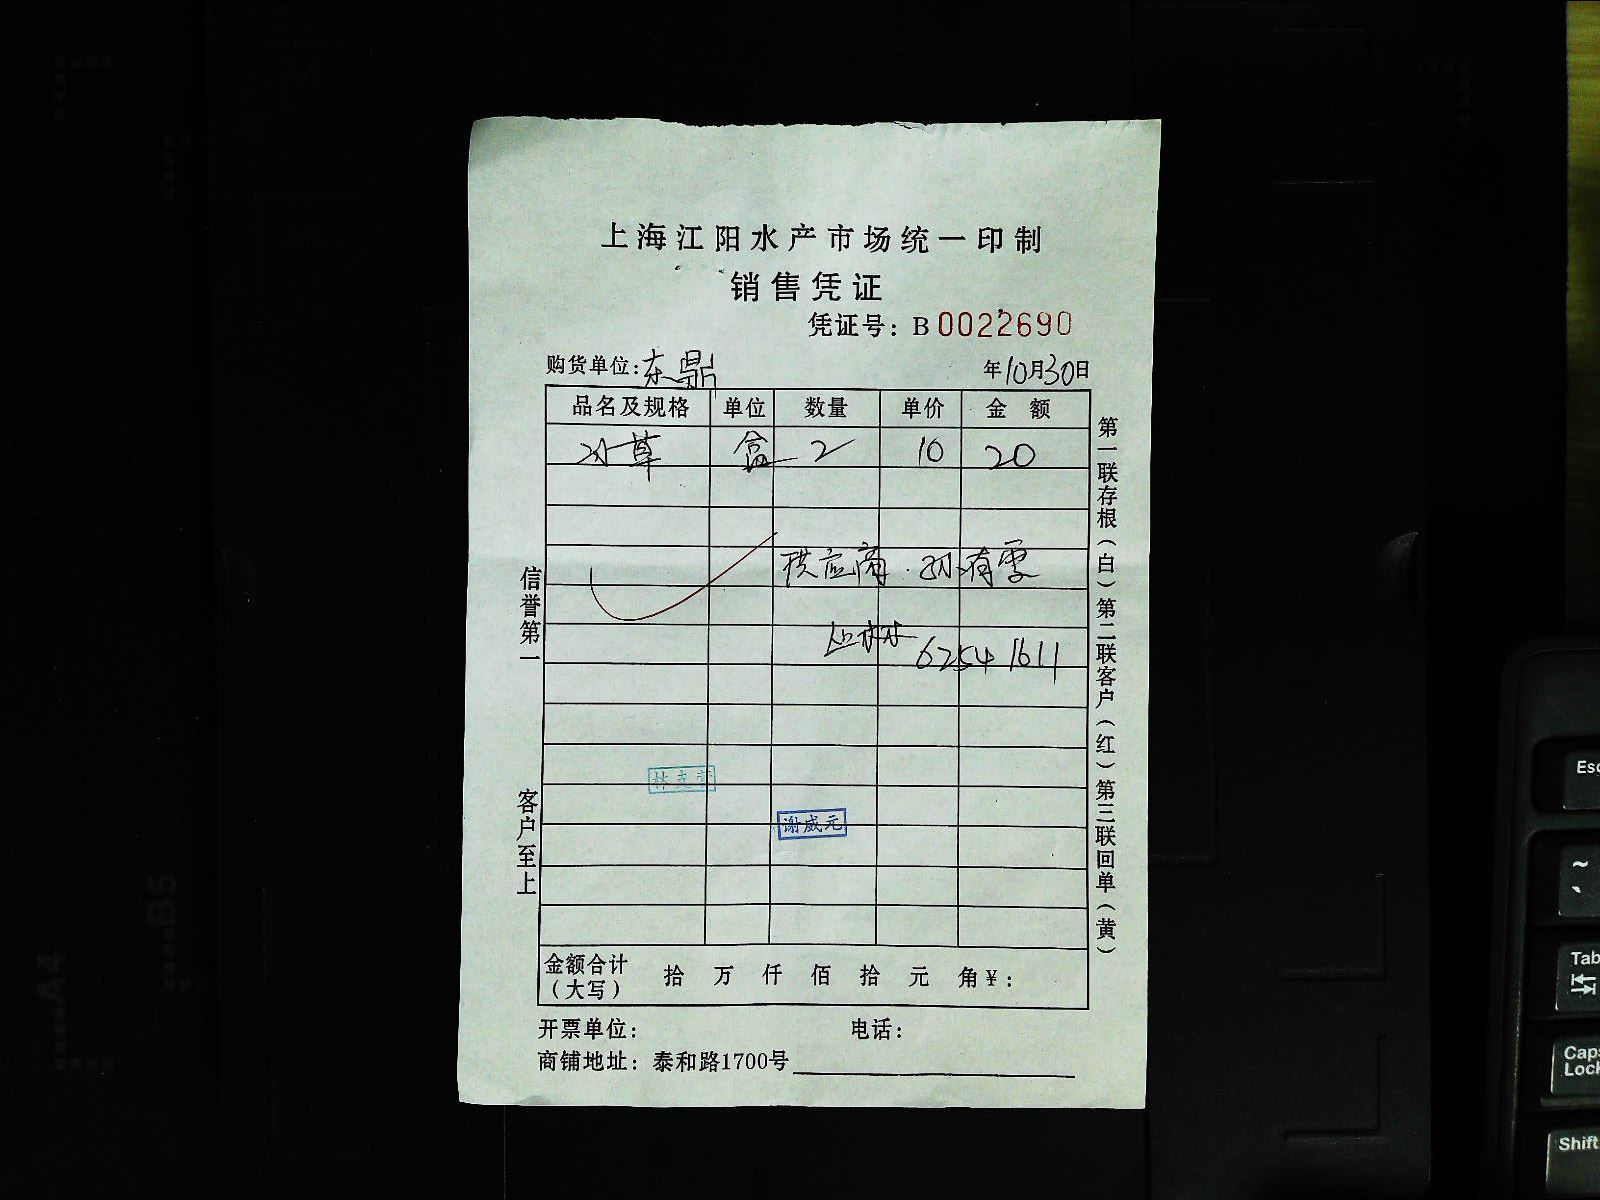 上海江阳水产市场统一印制
销售凭证
凭证号：B 0022690
购货单位：东鼎
年10月30日
品名及规格 单位 数量 单价 金额
草 盒 2 10 20
供应商 孙有雪
62541611
林支
谢威元
金额合计（大写） 拾 万 仟 佰 拾 元 角￥：
开票单位： 电话：
商铺地址：泰和路1700号
信誉第一 客户至上
第一联存根（白）第二联客户（红）第三联回单（黄）
Esc
~
`
Tab
Caps Lock
Shift
A4
B5